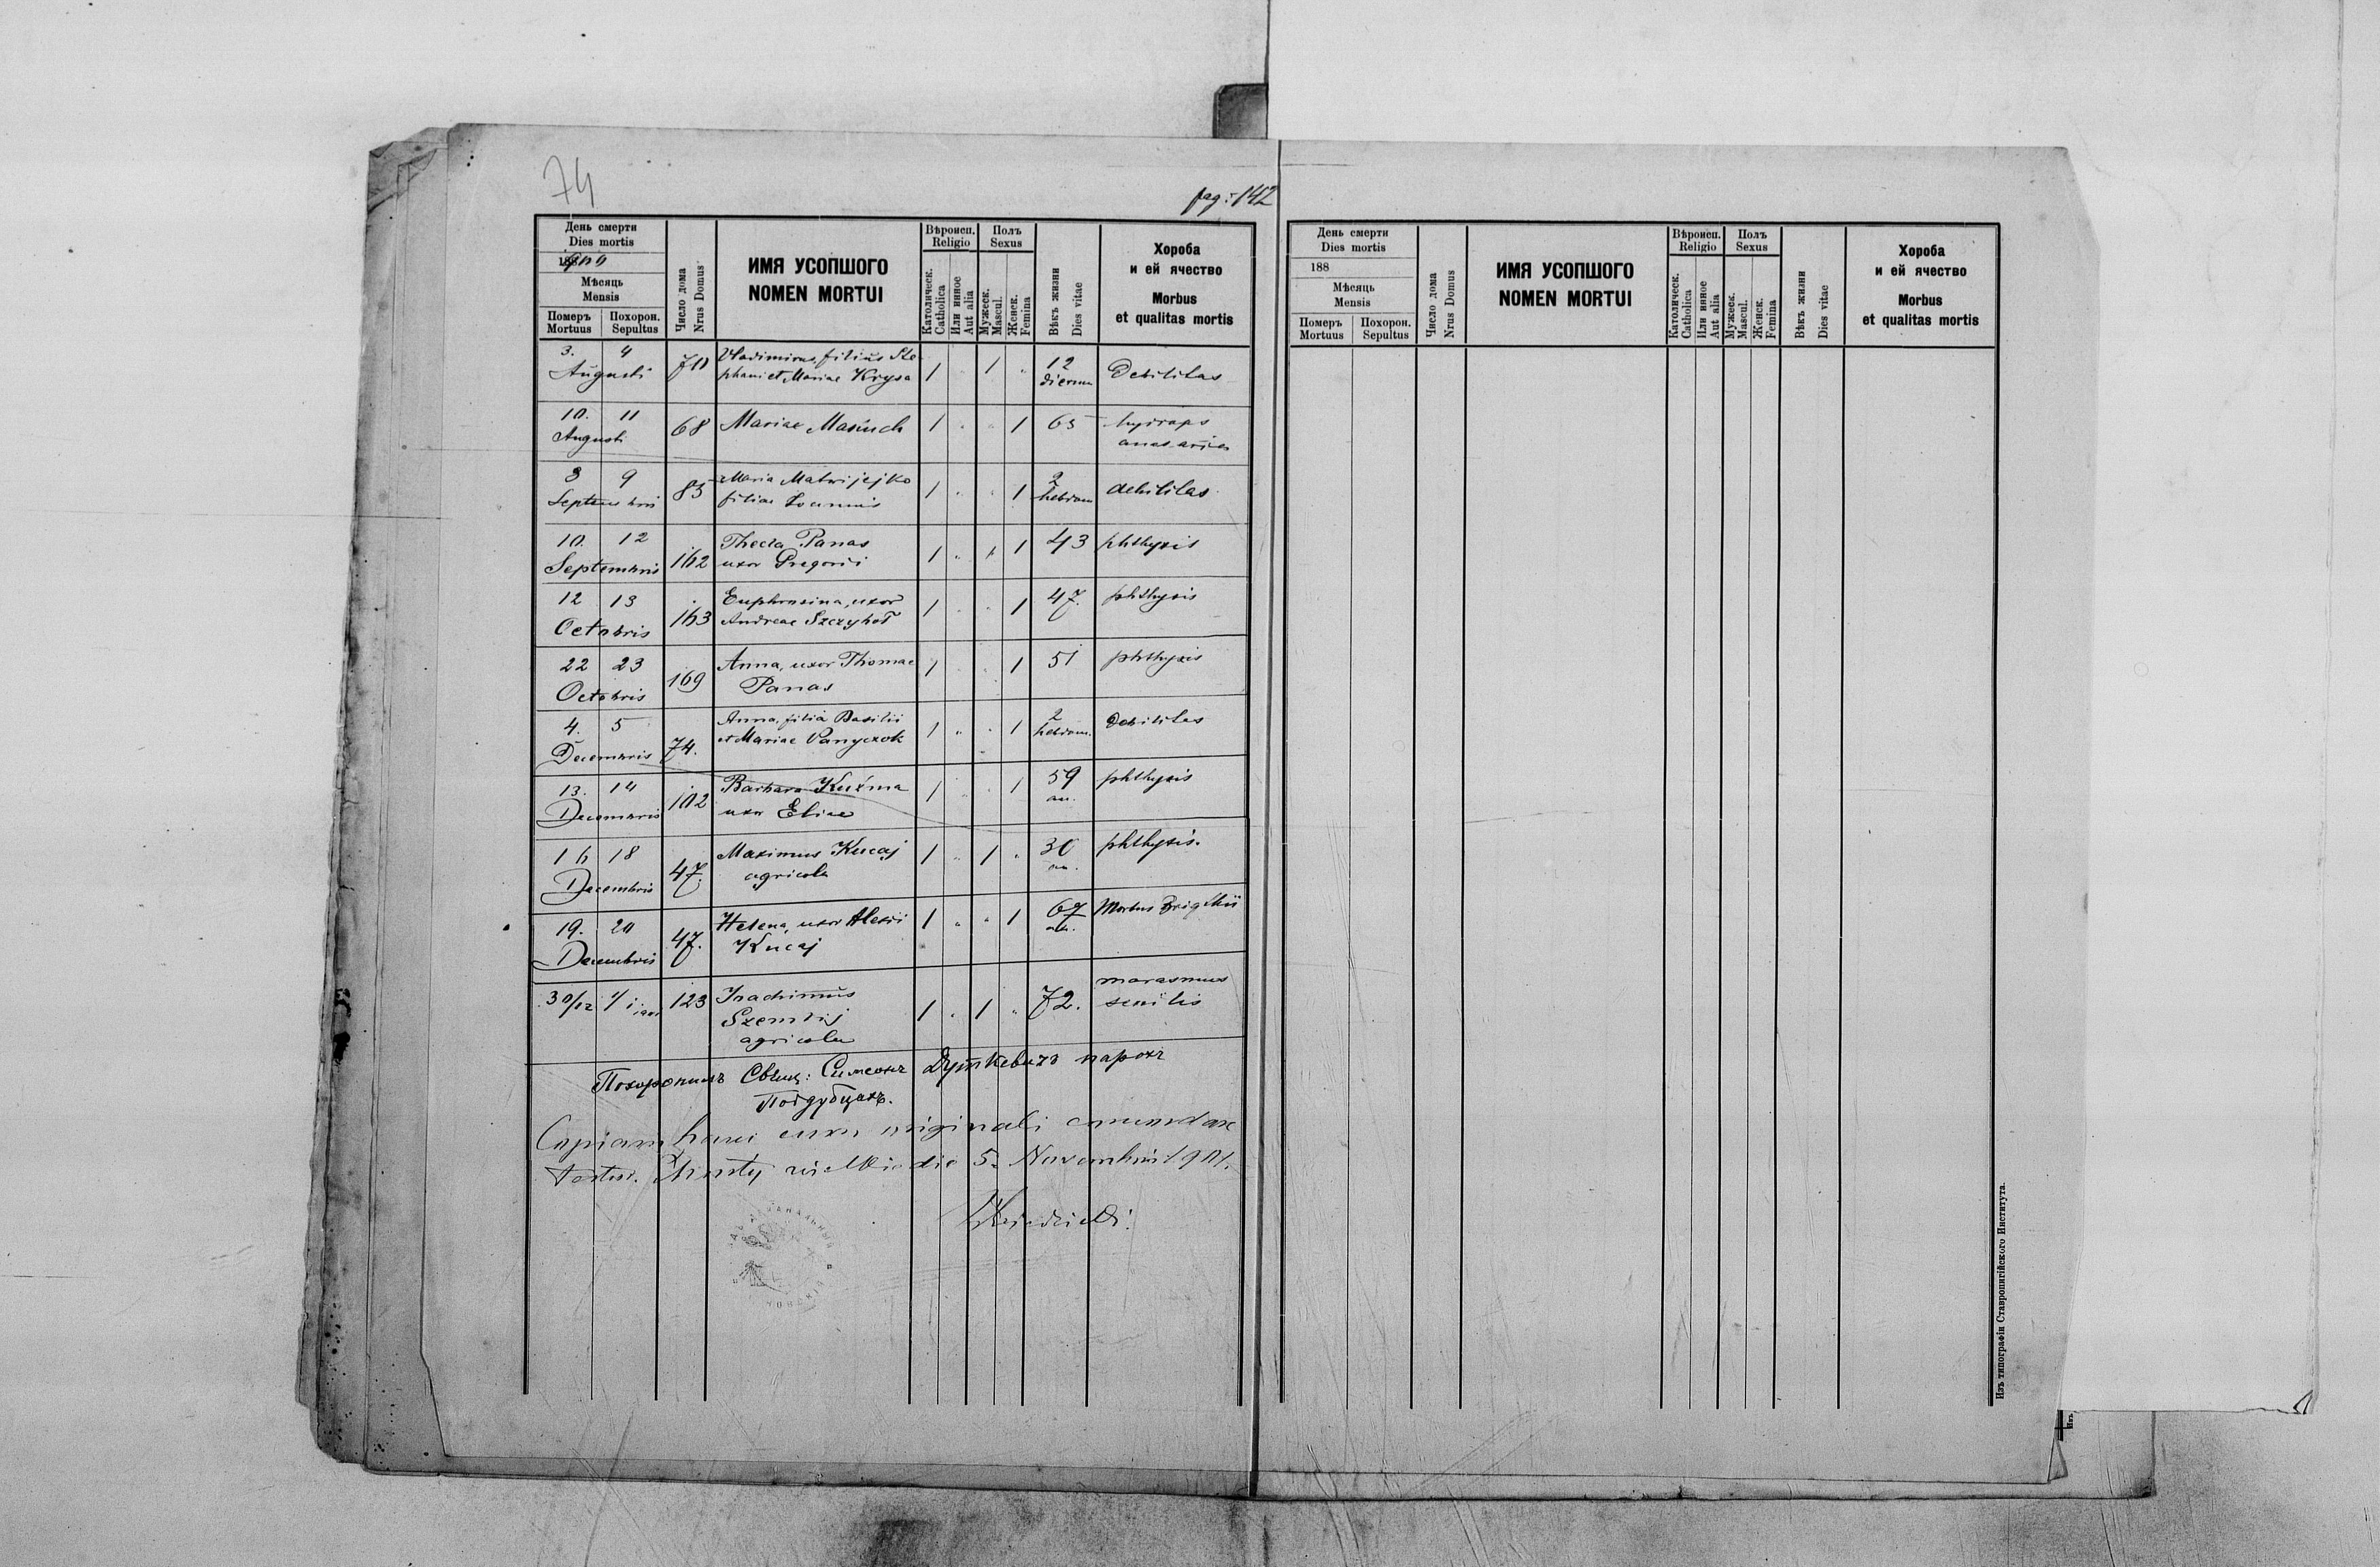 74
pag: 142
День смерти
Dies mortis
1900
Мѣсяць
Mensis
Померъ Похорон.
Mortuus Sepultus
Число дома
Nrus Domus
ИМЯ УСОПШОГО
NOMEN MORTUI
Вѣроисп.
Religio
Католическ.
Catholica
Или инное
Aut alia
Полъ
Sexus
Мужеск.
Mascul.
Женск.
Femina
Вѣкъ жизни
Dies vitae
Хороба
и ей ячество
Morbus
et qualitas mortis
3. 4 70 Vladimirus, filius Ste 1 " 1 " 12 Debilitas
Augusti phani et Mariae Krysa dierum
10. 11 68 Mariae 1 " " 1 65 hydrops
Augusti anasarica
3 9 85 Maria Matwijejko 1 " " 1 2 debilitas
Septembris filiae Joannis hebdom
10. 12 162 Thecla Panas 1 " 1 43 phthysis
Septembris uxor Gregorii
12 13 163 Euphrosina, uxor 1 " " 1 47. phthysis
Octobris Andreae
22 23 169 Anna, uxor Thomae 1 " " 1 51 phthysis
Octobris Panas
4. 5 74. Anna, filia Basilii 1 " " 1 2 debilitas
Decembris et Mariae Panyczok hebdom.
13. 14 102 Barbara Kuźma 1 " " 1 59 phthysis
Decembris uxor Eliae an.
16 18 47. Maximus Kucaj 1 " 1 " 30 phthysis.
Decembris agricola an.
19. 20 47. Helena, uxor Alexii 1 " " 1 67 Morbus Brigthii
Decembris Kucaj an.
30/12 1/1 123 Joachimus 1 " 1 " 72. marasmus
senilis
agricola
Похоронилъ Свящ: Симеонъ Дуткевичъ парохъ
Поддубцахъ.
Copiam hanc cum originali concordare
testor. die 5. Novembris 1901.
День смерти
Dies mortis
188
Мѣсяць
Mensis
Померъ Похорон.
Mortuus Sepultus
Число дома
Nrus Domus
ИМЯ УСОПШОГО
NOMEN MORTUI
Вѣроисп.
Religio
Католическ.
Catholica
Или инное
Aut alia
Полъ
Sexus
Мужеск.
Mascul.
Женск.
Femina
Вѣкъ жизни
Dies vitae
Хороба
и ей ячество
Morbus
et qualitas mortis
Изъ типографіи Ставропигійского Института.